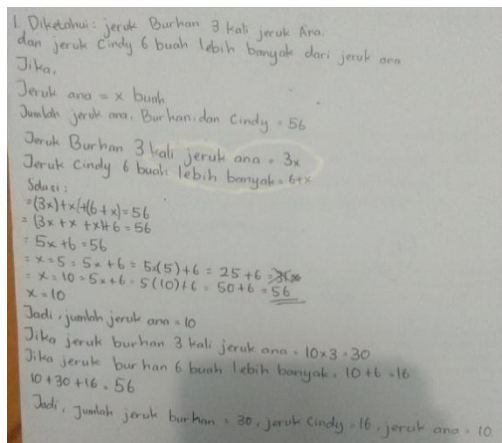 1. Diketahui : jeruk Burhan 3 kali jeruk Ana.
dan jeruk Cindy 6 buah lebih banyak dari jeruk ana
Jika,
Jeruk ana = x buah
Jumlah jeruk ana, Burhan, dan Cindy = 56
Jeruk Burhan 3 kali jeruk ana = 3x
Jeruk Cindy 6 buah lebih banyak = 6+x
Solusi :
=(3x)+x+(6+x)=56
= (3x +x +x)+6 = 56
= 5x +6 = 56
= x = 5 = 5x +6 = 5x(5)+6 = 25 +6 =
= x = 10 = 5x +6 = 5(10)+6 = 50+6 = 56
x = 10
Jadi, jumlah jeruk ana = 10
Jika jeruk burhan 3 kali jeruk ana = 10×3 = 30
Jika jeruk bur han 6 buah lebih banyak = 10 + 6 = 16
10 + 30 + 16 = 56
Jadi, Jumlah jeruk burhan = 30, jeruk Cindy = 16, jeruk ana = 10